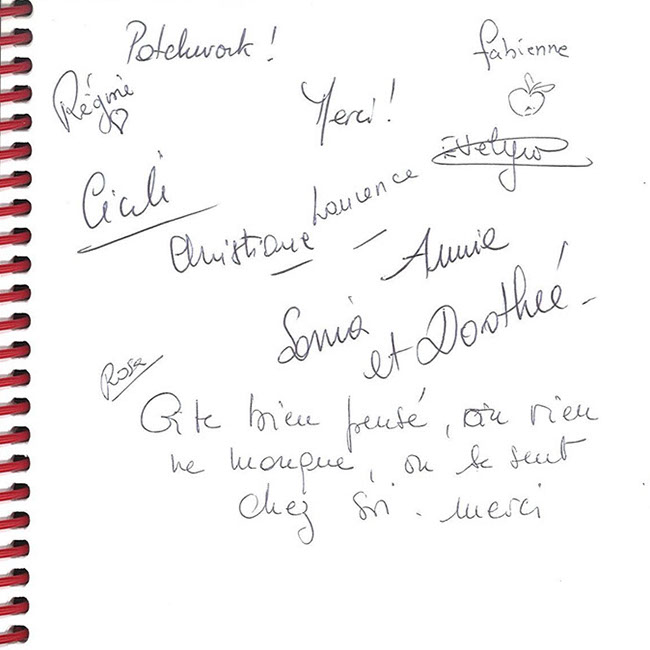 Patchwork !
fabienne
Régine
Merci !
Evelyne
Cécile
Laurence
Christiane
Annie
Sonia
et Dorothée
Rosa
Gîte bien pensé, où rien
ne manque, on se sent
chez soi. merci